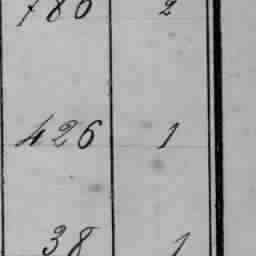 780 2
426 1
38 1